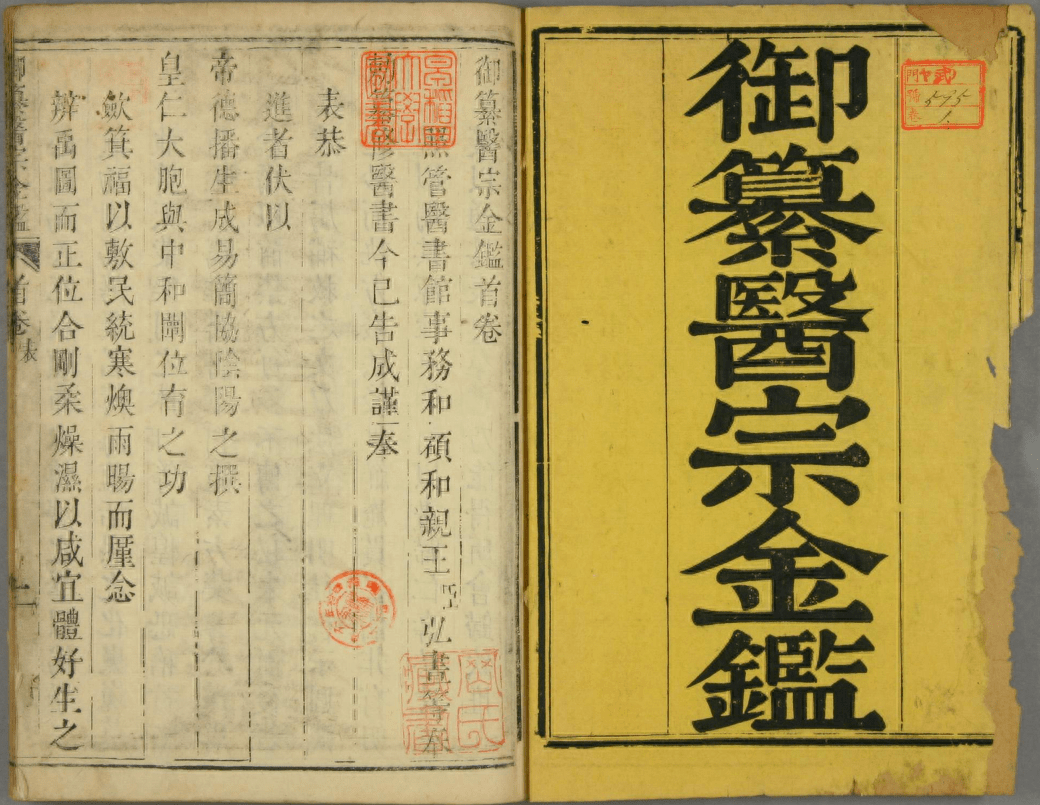 御纂醫宗金鑑
弍
門
號
卷
595
1
御纂醫宗金鑑首卷
照管醫書館事務和碩和親王臣弘晝等奉
勅纂修醫書今已告成謹奏
表恭
進者伏以
帝德播生成易簡協陰陽之撰
皇仁大胞與中和闡位育之功
斂箕福以敷民統寒燠雨暘而厪念
辨禹圖而正位合剛柔燥濕以咸宜體好生之
御纂醫宗金鑑 首卷 表 一